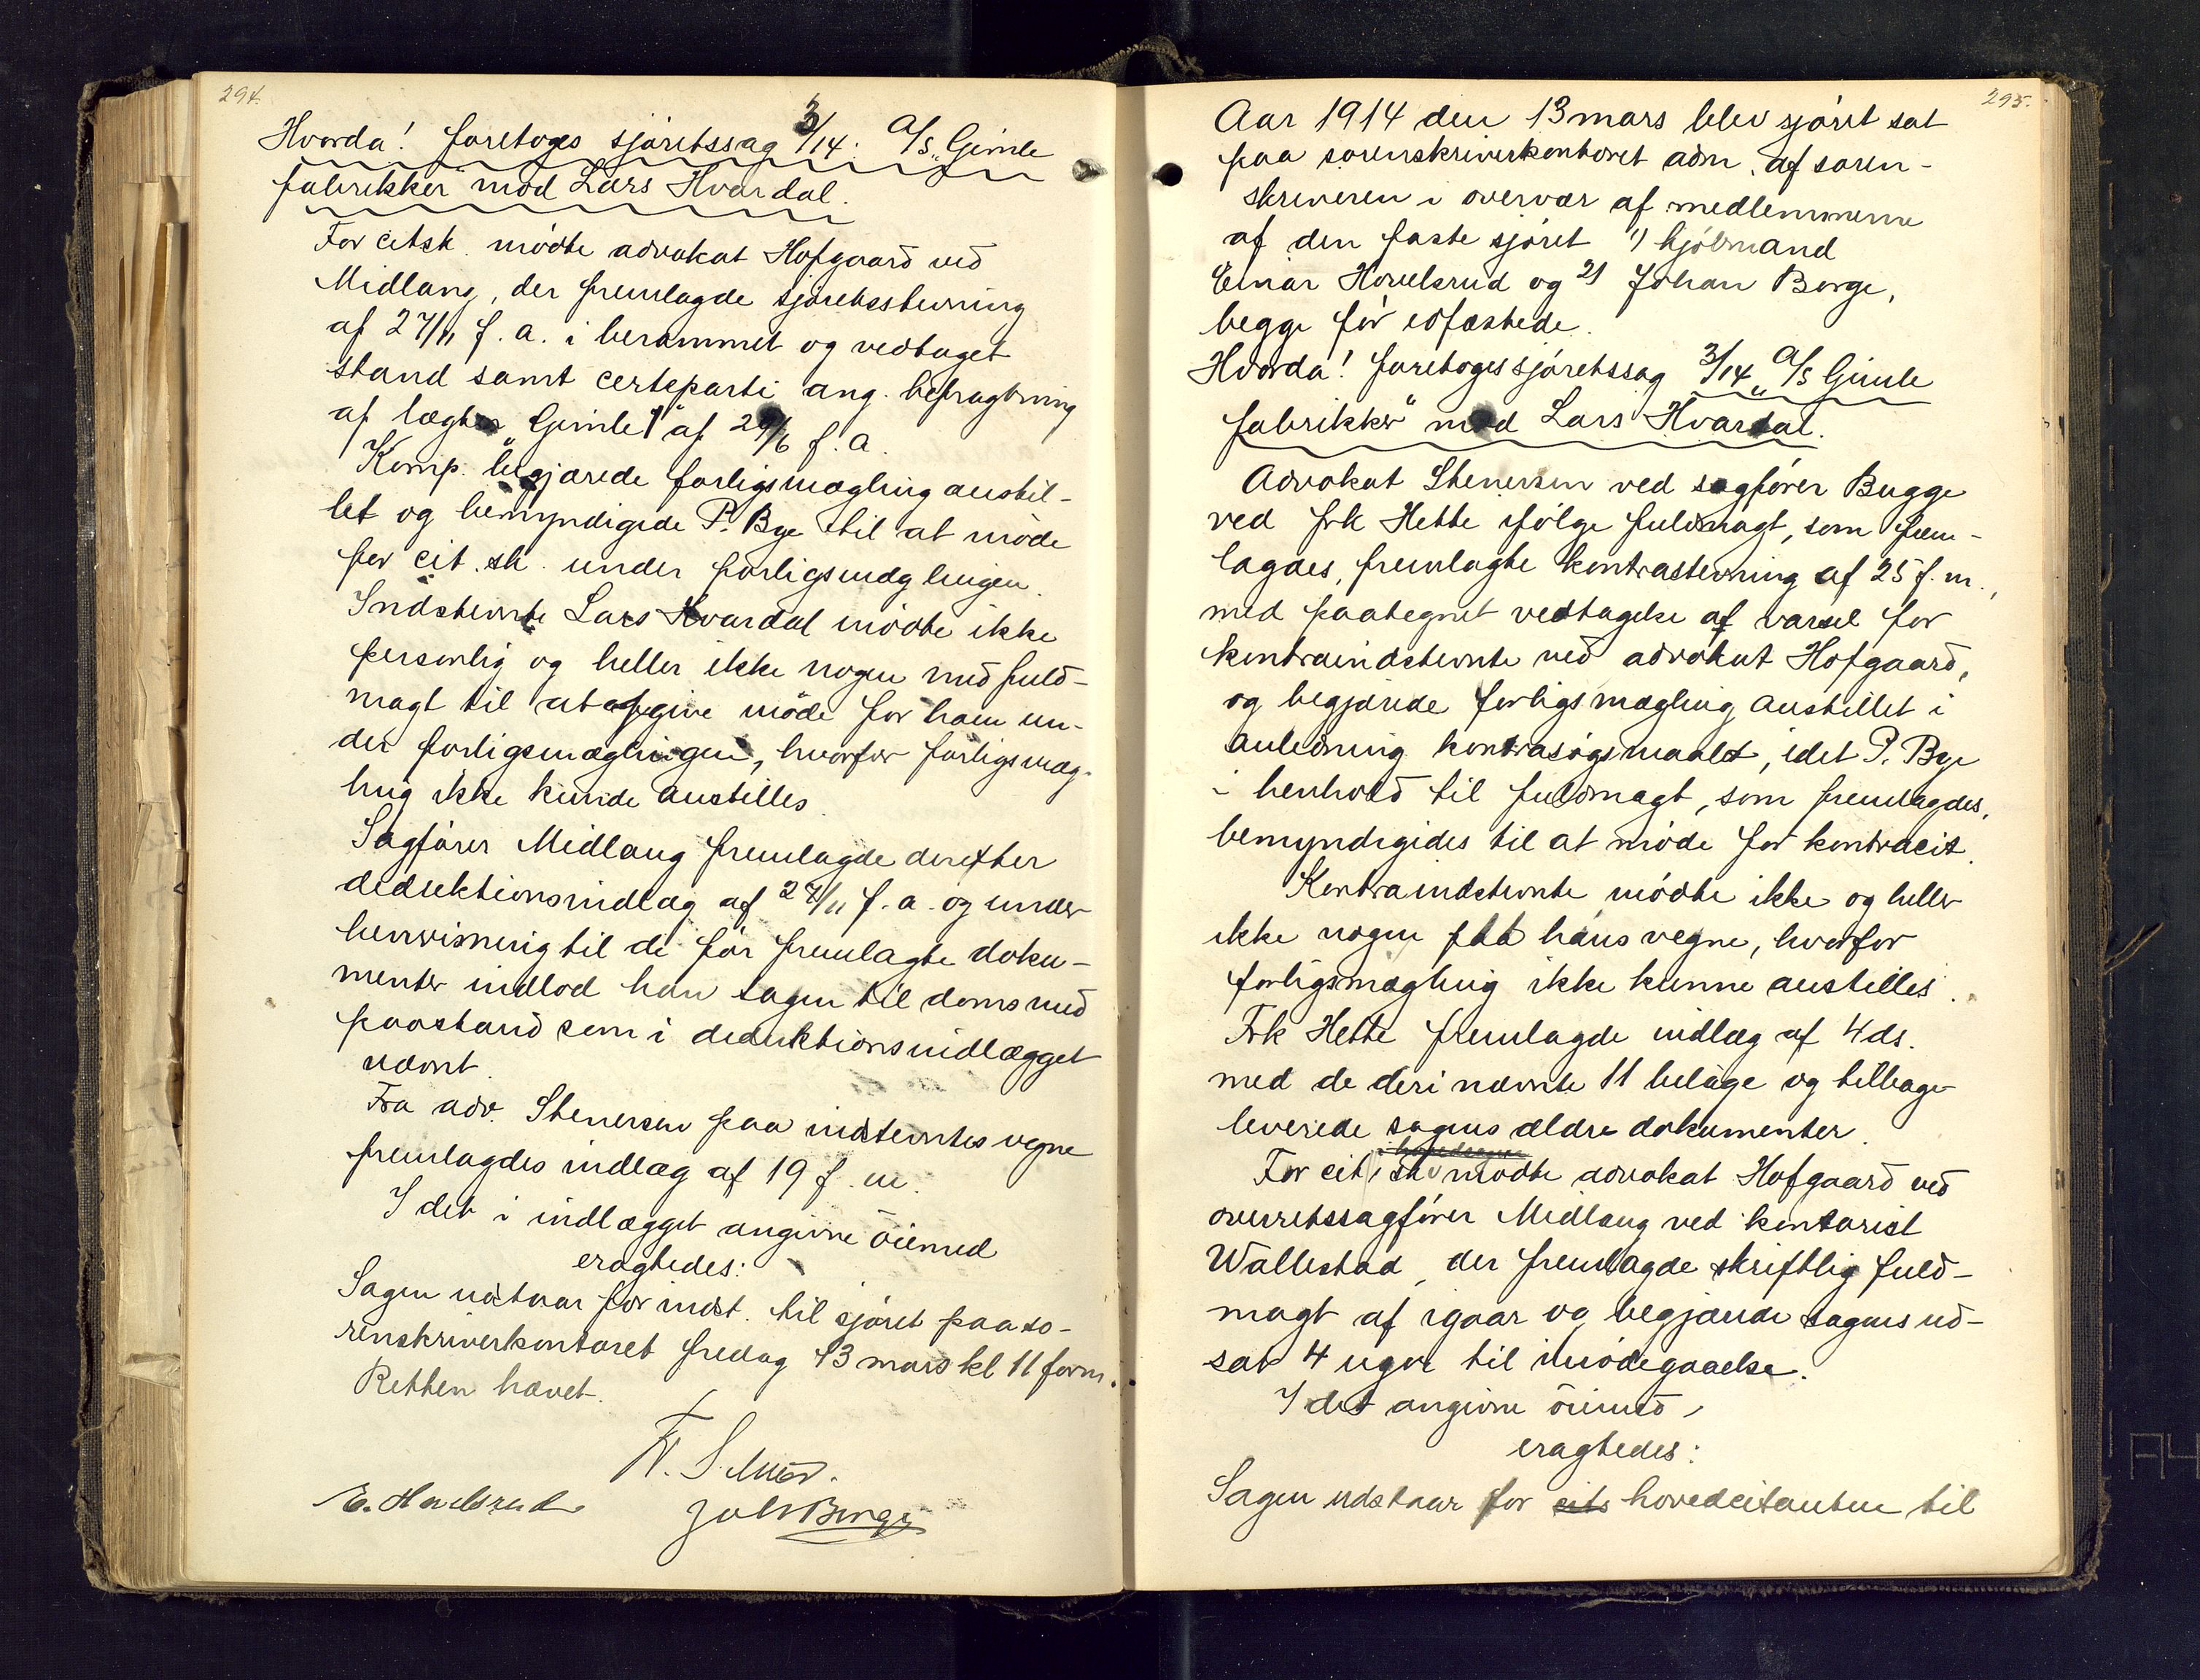 294.
Hvorda! foretoges sjøretssag 3/14: A/S „Gimle
fabrikker" mod Lars Hvardal.
For citsk. mødte advokat Hofgaard ved
Midlang, der fremlagde sjøretsstevning
af 27/11 f. a. i berammet og vedtaget
stand samt certeparti ang. befragtning
af lægter „Gimle 1" af 29/6 f. a.
Komp. begjærede forligsmægling anstil-
let og bemyndigede P. Bye til at møde
for cit. sk. under forligsmæglingen.
Indstevnte Lars Hvardal mødte ikke
personlig og heller ikke nogen med fuld-
magt til at afgive møde for ham un-
der forligsmæglingen, hvorfor forligsmæg-
ling ikke kunde anstilles.
Sagfører Midlang fremlagde derefter
deduktionsindlæg af 27/11 f. a. og under
henvisning til de før fremlagte doku-
menter indlod han sagen til doms med
paastand som i deduktionsindlægget
nævnt.
Fra adv. Stenersen paa indstevntes vegne
fremlagdes indlæg af 19 f. m.
I det i indlægget angivne øiemed
eragtedes:
Sagen udstaar for indst. til sjøret paa so-
renskriverkontoret fredag 13 mars kl 11 form.
Retten hævet.
E. Hovelsrud
Joh Borge
295.
Aar 1914 den 13 mars blev sjøret sat
paa sorenskriverkontoret adm. af soren-
skriveren i overvær af medlemmerne
af den faste sjøret 1) hjølmand
Einar Hovelsrud og 2) Johan Borge,
begge før edfæstede.
Hvorda! foretoges sjøretssag 3/14 A/S „Gimle
fabrikker" mod Lars Hvardal.
Advokat Stenersen ved sagfører Bugge
ved frk Hette ifølge fuldmagt, som frem-
lagdes, fremlagte kontrastevning af 25 f. m.,
med paategnet vedtagelse af varsel for
kontraindstevnte ved advokat Hofgaard,
og begjærede forligsmægling anstillet i
anledning kontrasøgsmaalet, idet P. Bye
i henhold til fuldmagt, som fremlagdes,
bemyndigedes til at møde for kontracit.
Kontraindstevnte mødte ikke og heller
ikke nogen paa hans vegne, hvorfor
forligsmægling ikke kunne anstilles.
Frk Hette fremlagde indlæg af 4 ds.
med de deri nævnte 11 bilage og tilbage-
leverede sagens ældre dokumenter.
i hovedsagen
For cit. sk. mødte advokat Hofgaard ved
overretssagfører Midlang ved kontorist
Wallestad, der fremlagde skriftlig fuld-
magt af igaar og begjærede sagens ud-
sat 4 uger til imødegaaelse.
I det angivne øiemed,
eragtedes:
Sagen udstaar for cits hovedcitanten til